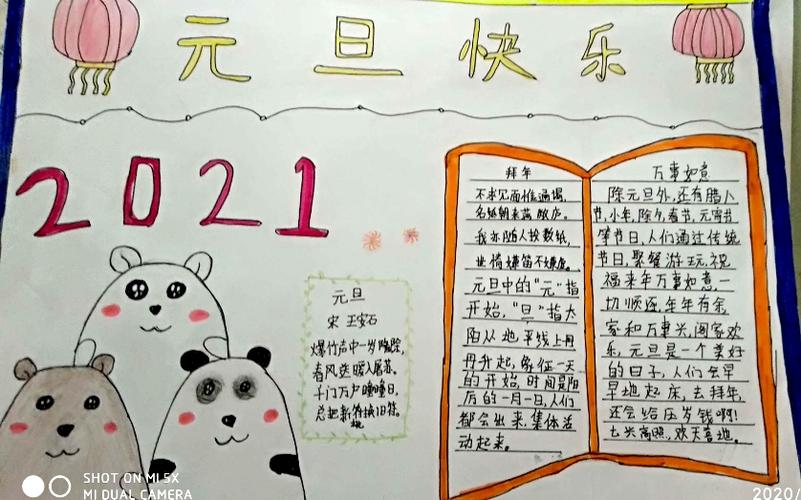 元旦快乐
2021
元旦
宋 王安石
爆竹声中一岁除,
春风送暖入屠苏。
千门万户曈曈日,
总把新桃换旧符。
拜年
不求见面惟通谒,
名纸朝来满敝庐。
我亦随人投数纸,
世情嫌简不嫌虚。
元旦中的“元”指
开始,“旦”指太
阳从地平线上冉
冉升起,象征一天
的开始,时间是阳
历的一月一日,人们
都会出来,集体活
动起来。
万事如意
除元旦外,还有腊八
节,小年,除夕,春节,元宵节
等节日,人们通过传统
节日,聚餐游玩,祝
福来年万事如意,一
切顺逐,年年有余
家和万事兴,阖家欢
乐,元旦是一个美好
的日子,人们会早
早地起床,去拜年,
还会给压岁钱啊!
七兴高照,欢天喜地。
SHOT ON MI 5X
MI DUAL CAMERA
2020/